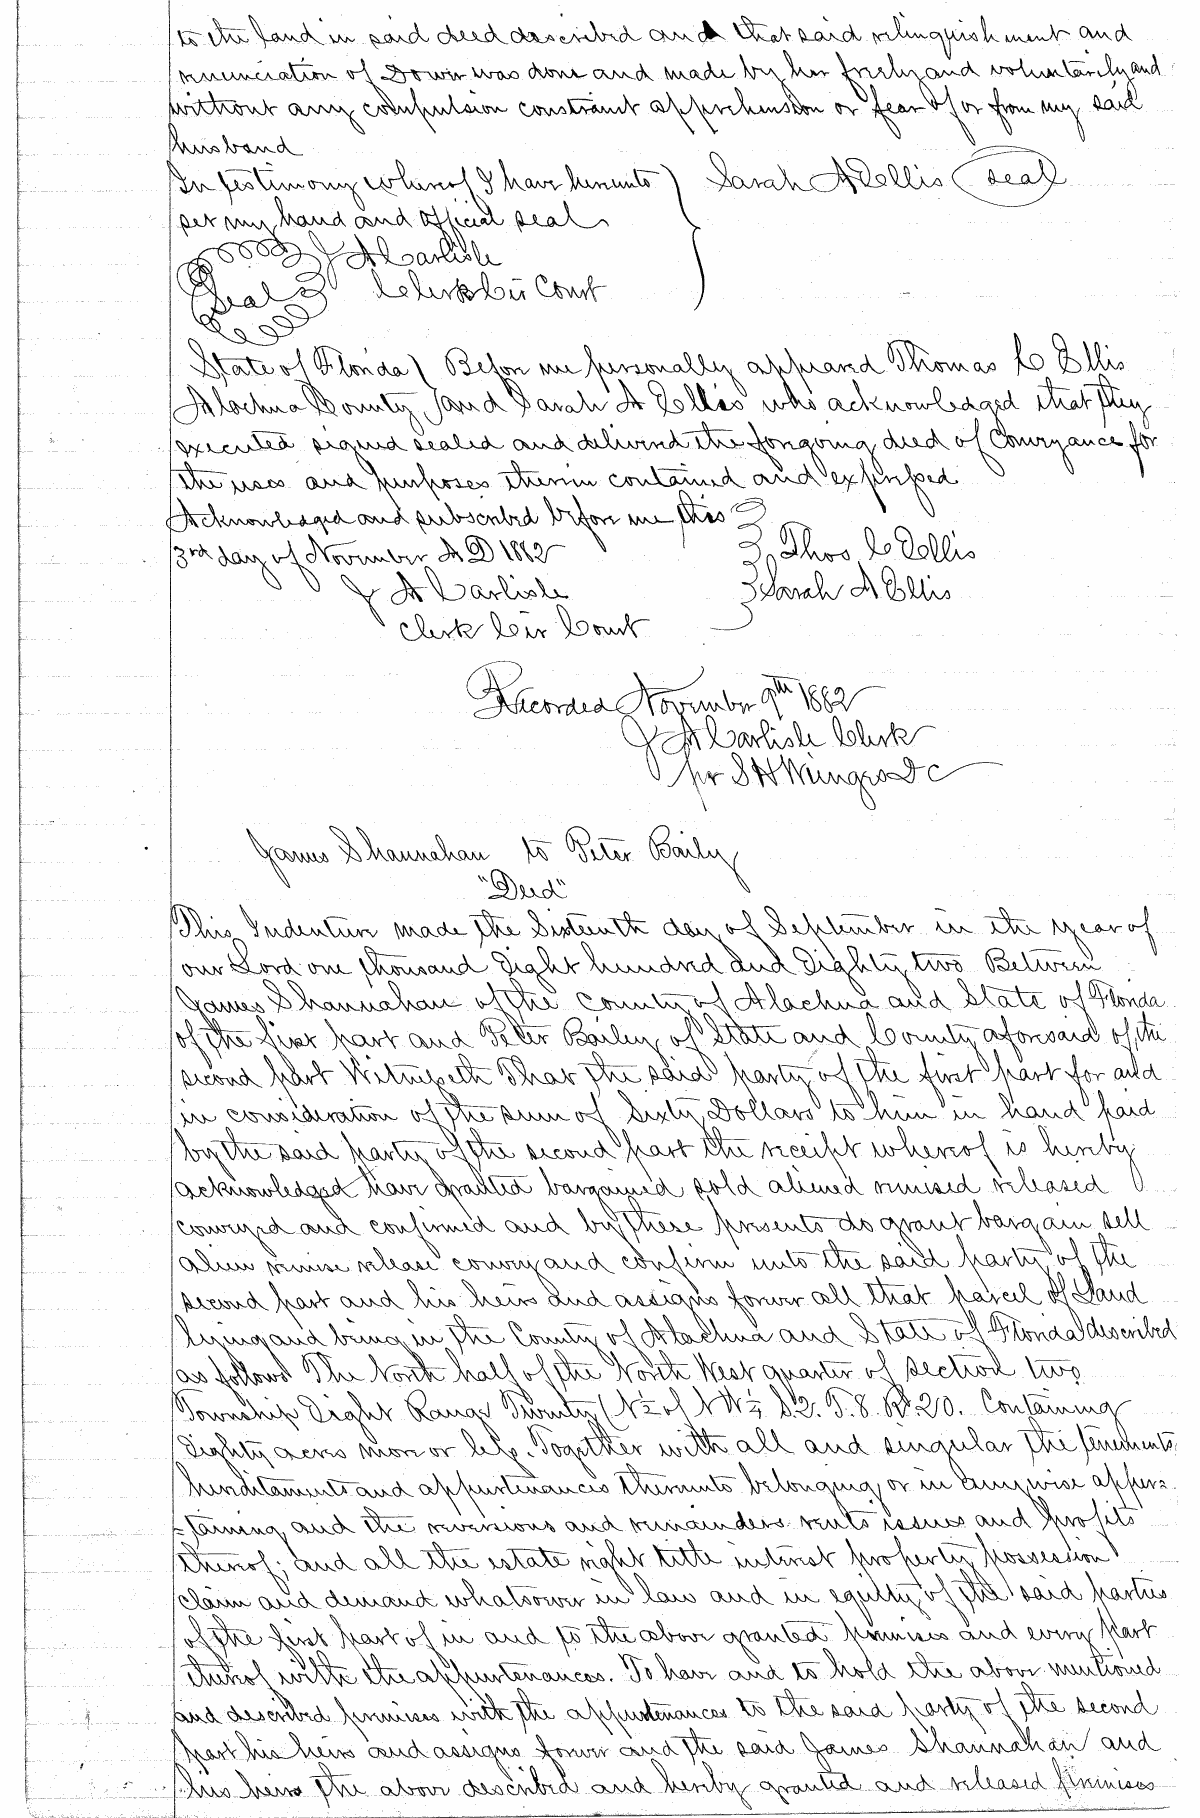 to the land in said deed described and that said relinquishment and
renunciation of Dower was done and made by her freely and voluntarily and
without any compulsion constraint apprehension or fear of or from my said
husband
In testimony whereof I have hereunto ) Sarah A Ellis (seal)
set my hand and official seal
J A Carlisle
Seal Clerk Cir Court
State of Florida ) Before me personally appeared Thomas C Ellis
Alachua County ) and Sarah A Ellis who acknowledged that they
executed signed sealed and delivered the foregoing deed of Conveyance for
the uses and purposes therein contained and expressed
Acknowledged and subscribed before me this
3rd day of November A D 1882 Thos C Ellis
J A Carlisle Sarah A Ellis
Clerk Cir Court
Recorded November 9th 1882
J A Carlisle Clerk
per S H Wienges D C
James Shannahan to Peter Baily
"Deed"
This Indenture made the Sixteenth day of September in the year of
our Lord one thousand Eight hundred and Eighty two Between
James Shannahan of the County of Alachua and State of Florida
of the first part and Peter Bailey of State and County aforesaid of the
second part Witnesseth That the said party of the first part for and
in consideration of the sum of Sixty Dollars to him in hand paid
by the said party of the second part the receipt whereof is hereby
acknowledged have granted bargained sold aliened remised released
conveyed and confirmed and by these presents do grant bargain sell
alien remise release convey and confirm unto the said party of the
second part and his heirs and assigns forever all that parcel of Land
lying and being in the County of Alachua and State of Florida described
as follows The North half of the North West quarter of section two
Township Eight Range Twenty (N½ of NW¼ S.2. T.8. R.20. Containing
Eighty acres more or less. Together with all and singular the tenements
hereditaments and appurtenances thereunto belonging or in anywise apper=
=taining and the reversions and remainders rents issues and profits
thereof; and all the estate right title interest property possession
claim and demand whatsoever in law and in equity of the said parties
of the first part of in and to the above granted premises and every part
thereof with the appurtenances. To have and to hold the above mentioned
and described premises with the appurtenances to the said party of the second
part his heirs and assigns forever and the said James Shannahan and
his heirs the above described and hereby granted and released premises